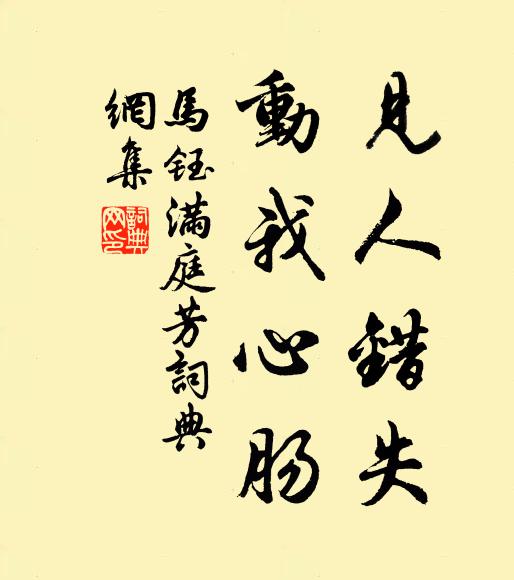 見人錯失
動我心肠
馬鈺满庭芳詞典
網集
詞典
网印